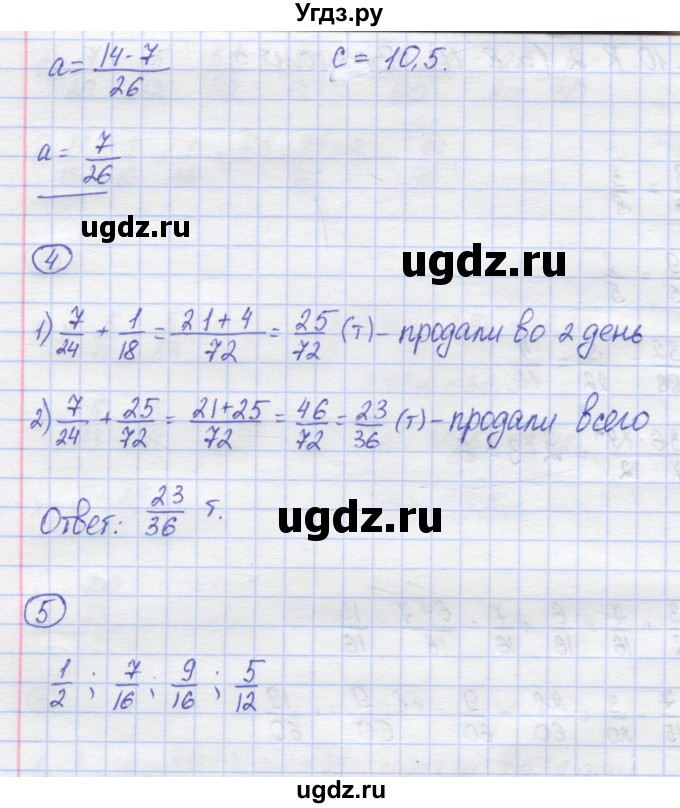 Угдз.ру
a = (14 - 7)/26
c = 10,5.
a = 7/26
ugdz.ru
ugdz.ru
4
1) 7/24 + 1/18 = (21 + 4)/72 = 25/72 (т) – продали во 2 день
2) 7/24 + 25/72 = (21 + 25)/72 = 46/72 = 23/36 (т) – продали всего
Ответ: 23/36 т.
ugdz.ru
ugdz.ru
5
1/2 ; 7/16 ; 9/16 ; 5/12
ugdz.ru
ugdz.ru
ugdz.ru